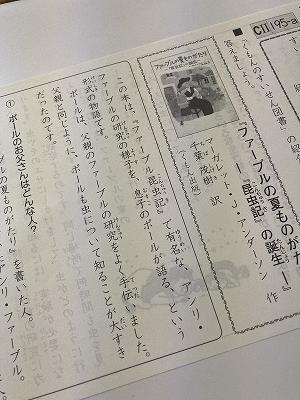 CII195a
くもんのすいせん図書
答えましょう。
『ファーブルの夏ものがたり
『昆虫記』の誕生―』
マーガレット・J・アンダーソン 作
千葉 茂樹 訳
(くもん出版)
ファーブルの夏ものがたり
この本は、『ファーブル昆虫記』で有名な、アンリ・
ファーブルの研究の様子を、息子のポールが語る、という
形式の物語です。
ポールは、父親のファーブルの研究をよく手伝いました。
父親と同じように、ポールも虫について知ることが大すき
だったのです。
① ポールのお父さんはどんな人？
ブルの夏ものがたり』を書いた人。
アンリ・ファーブル。